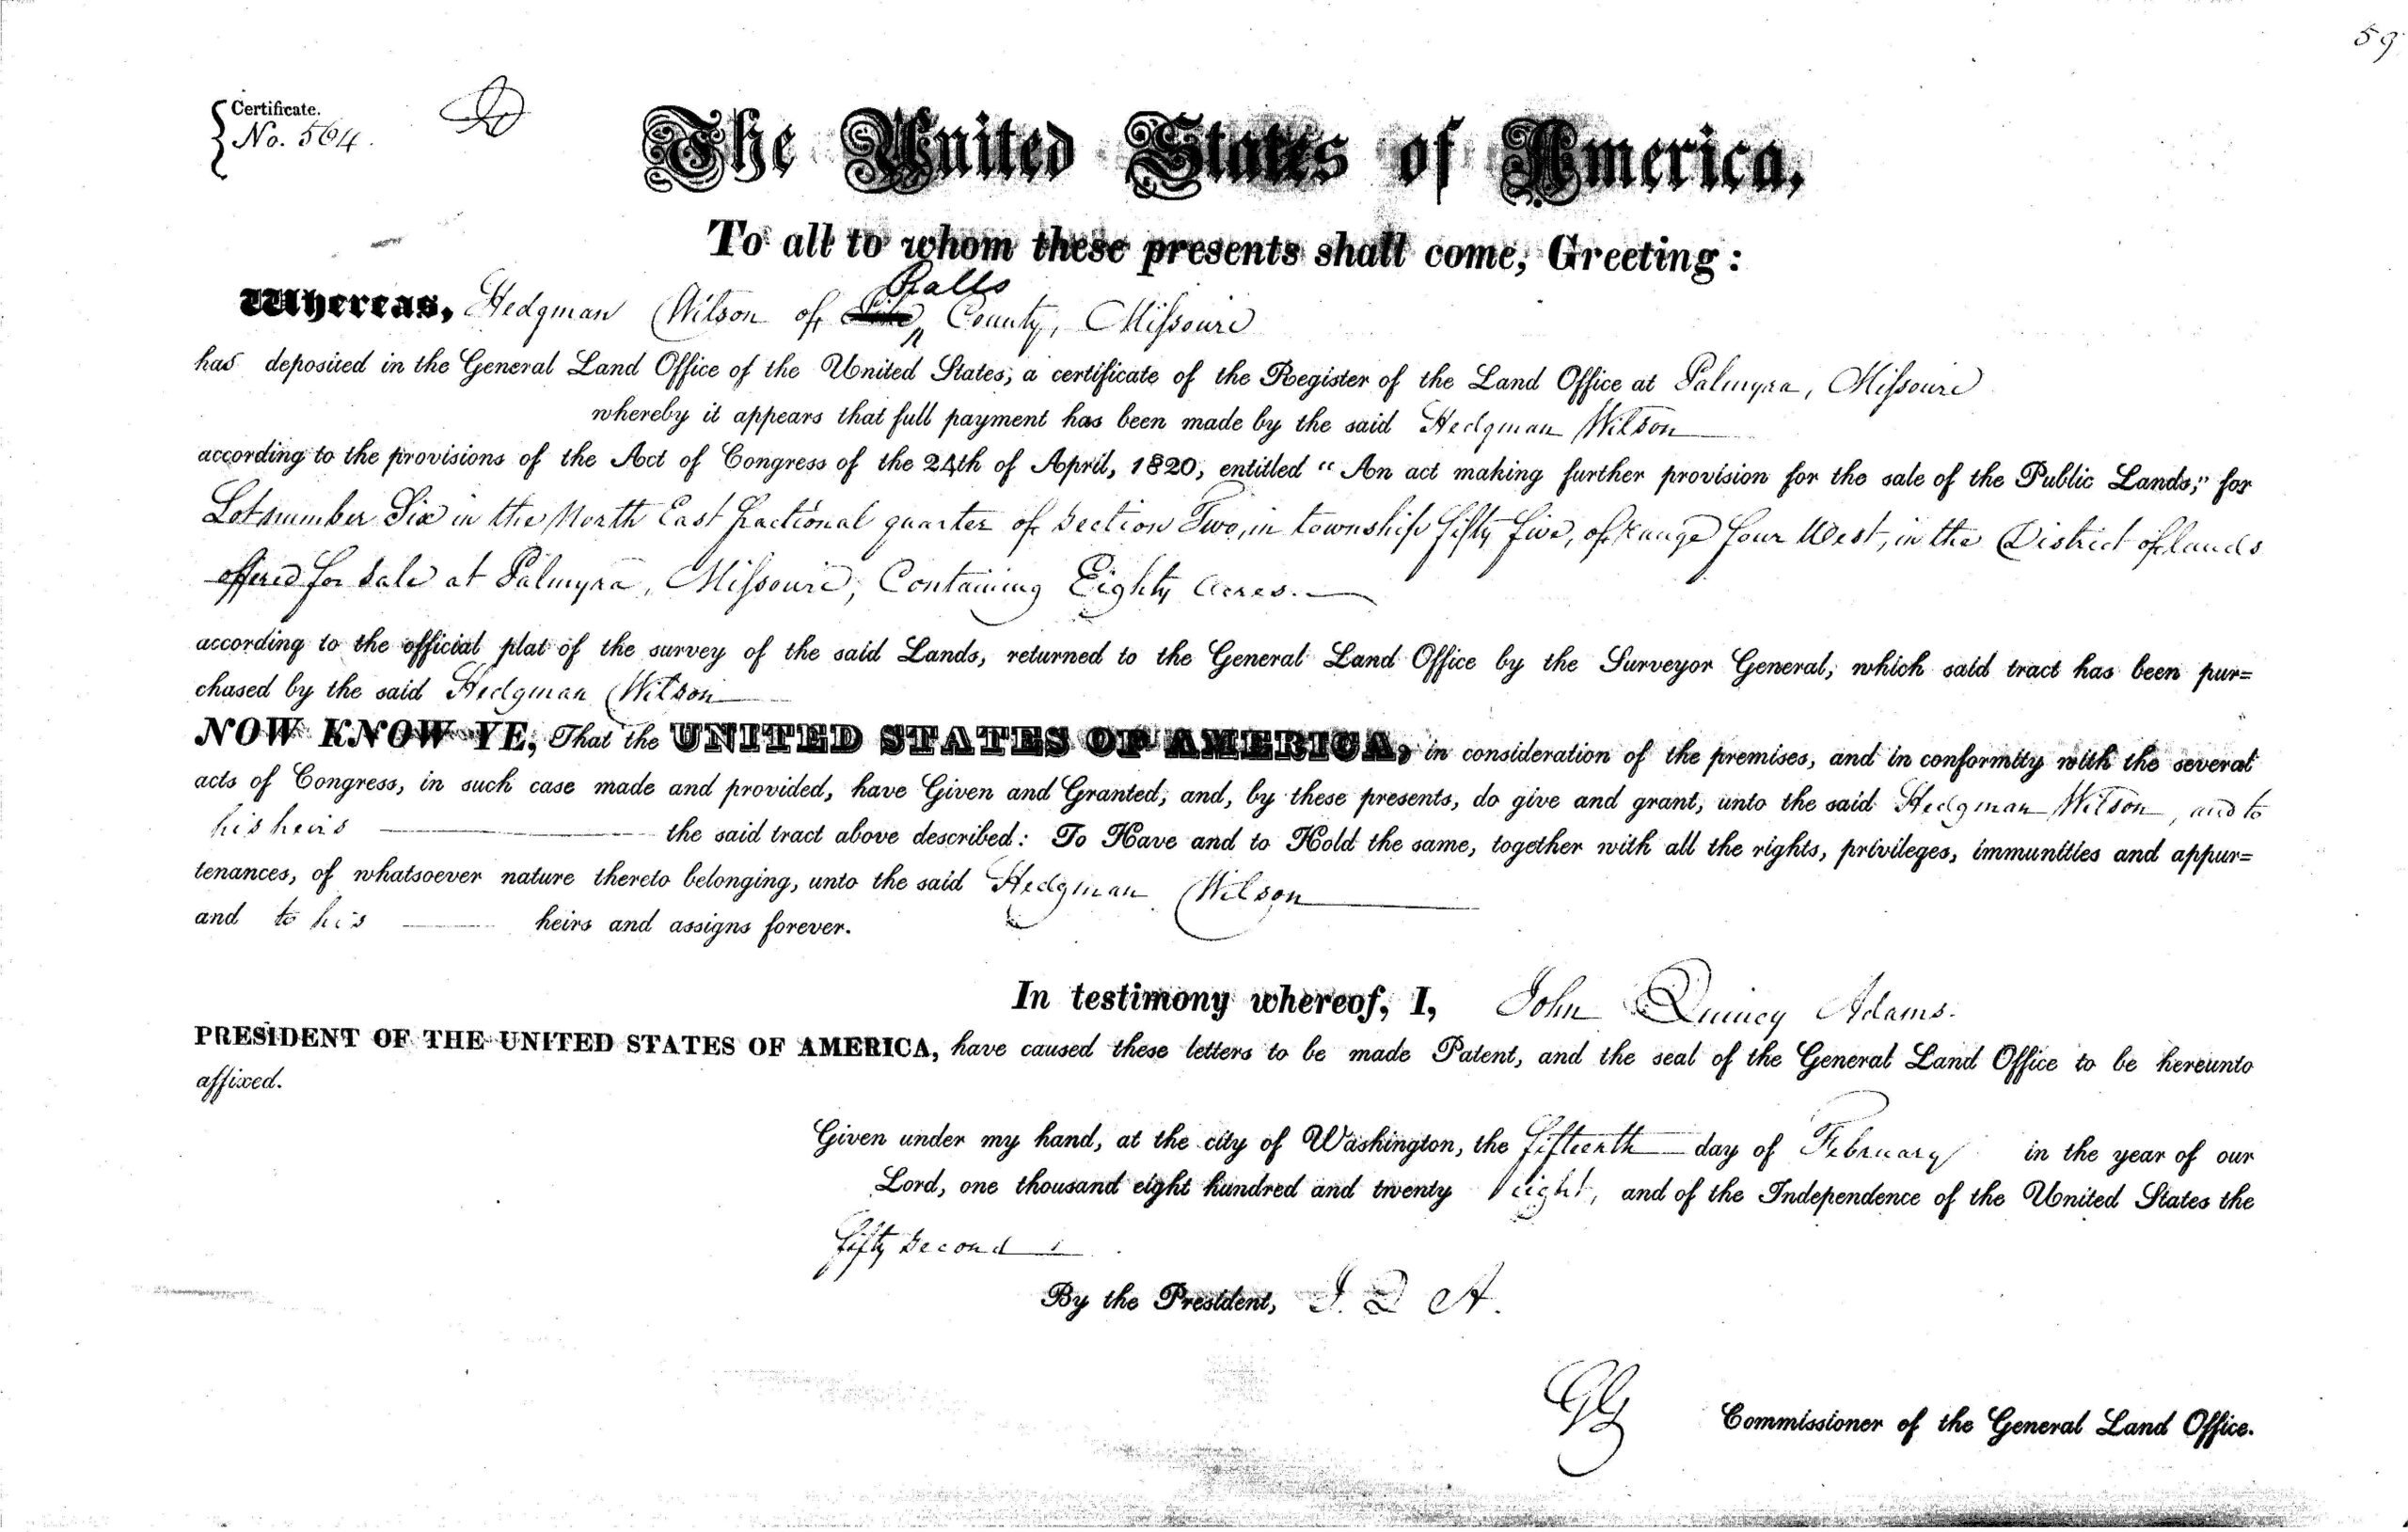 59
Certificate.
No. 564.
The United States of America,
To all to whom these presents shall come, Greeting:
Ralls
Whereas, Hedgman Wilson of County, Missouri
has deposited in the General Land Office of the United States, a certificate of the Register of the Land Office at Palmyra, Missouri
whereby it appears that full payment has been made by the said Hedgman Wilson
according to the provisions of the Act of Congress of the 24th of April, 1820, entitled "An act making further provision for the sale of the Public Lands," for
Lot number Six in the North East fractional quarter of Section Two, in township fifty five, of range four West, in the District of lands
offered for sale at Palmyra, Missouri, Containing Eighty acres.
according to the official plat of the survey of the said Lands, returned to the General Land Office by the Surveyor General, which said tract has been pur=
chased by the said Hedgman Wilson
NOW KNOW YE, That the UNITED STATES OF AMERICA, in consideration of the premises, and in conformity with the several
acts of Congress, in such case made and provided, have Given and Granted, and, by these presents, do give and grant, unto the said Hedgman Wilson, and to
his heirs the said tract above described: To Have and to Hold the same, together with all the rights, privileges, immunities and appur=
tenances, of whatsoever nature thereto belonging, unto the said Hedgman Wilson
and to his heirs and assigns forever.
In testimony whereof, I, John Quincy Adams.
PRESIDENT OF THE UNITED STATES OF AMERICA, have caused these letters to be made Patent, and the seal of the General Land Office to be hereunto
affixed.
Given under my hand, at the city of Washington, the fifteenth day of February in the year of our
Lord, one thousand eight hundred and twenty eight, and of the Independence of the United States the
fifty second
By the President, J. Q. A.
GG Commissioner of the General Land Office.